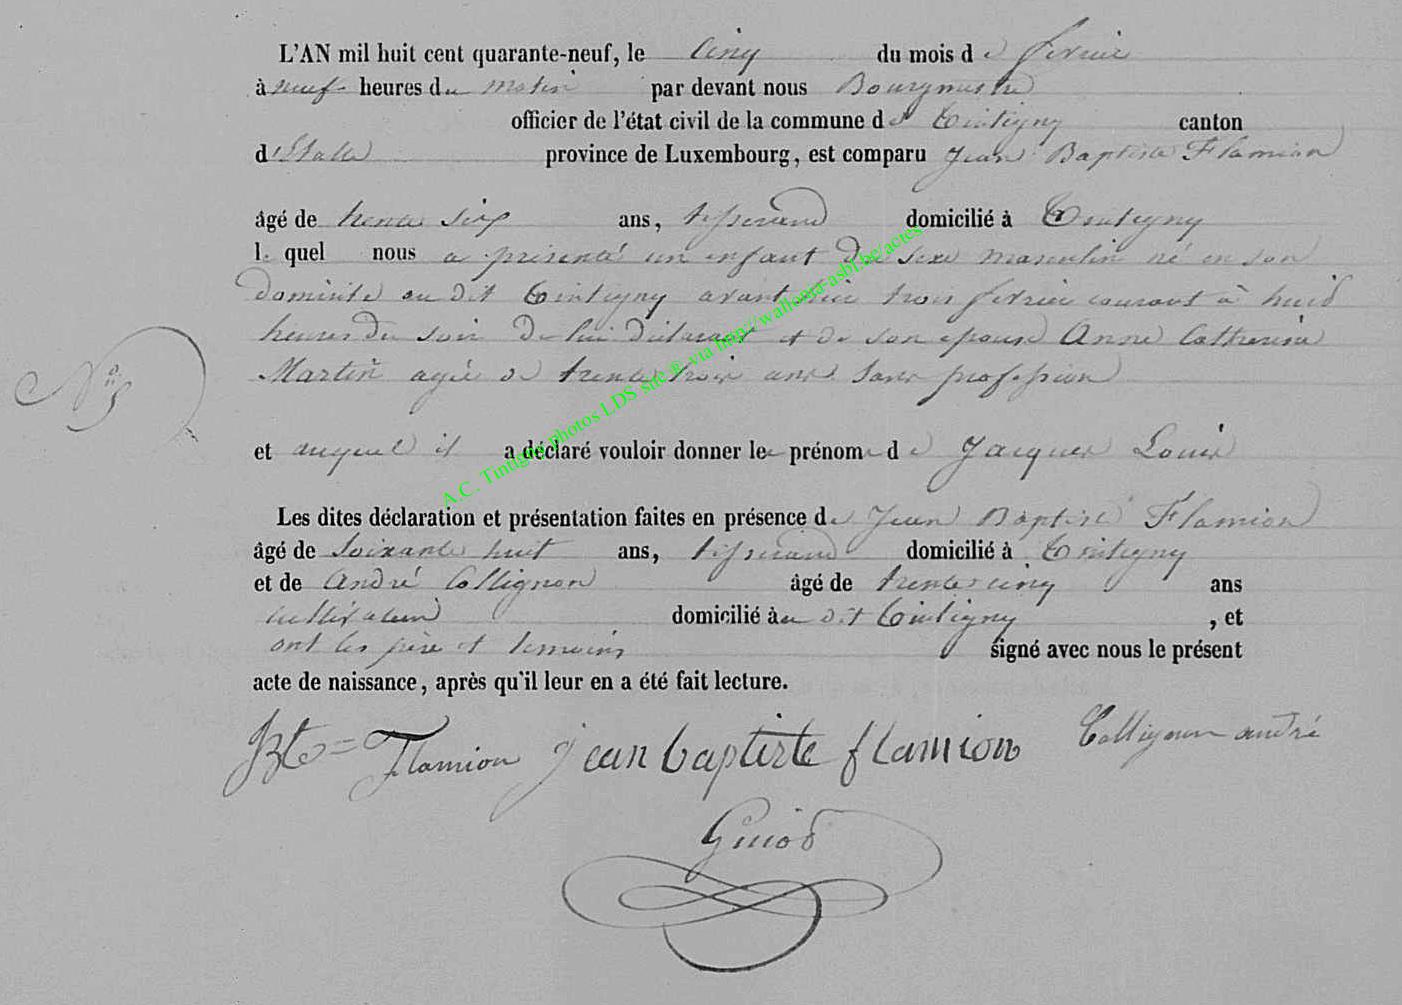 L'AN mil huit cent quarante-neuf, le Cinq du mois de fevrier
à neuf heures du matin par devant nous Bourgmestre
officier de l'état civil de la commune de Tintigny canton
d'Etalle province de Luxembourg, est comparu Jean Baptiste Flamion
âgé de trente six ans, tisserand domicilié à Tintigny
lequel nous a présenté un enfant du sexe masculin né en son
domicile au dit Tintigny avant hier trois fevrier courant à huit
heures du soir de lui déclarant et de son epouse Anne Catherine
Martin agée de trente trois ans sans profession
N° 5
et auquel il a déclaré vouloir donner les prénoms de Jacques Louis
Les dites déclaration et présentation faites en présence de Jean Baptiste Flamion
âgé de Soixante huit ans, tisserand domicilié à Tintigny
et de André Collignon âgé de trente cinq ans
cultivateur domicilié au dit Tintigny, et
ont les père et temoins signé avec nous le présent
acte de naissance, après qu'il leur en a été fait lecture.
JBte= Flamion jean baptiste flamion Collignon andré
A.C. Tintigny photos LDS site ® via http://wallonia-asbl.be/actes